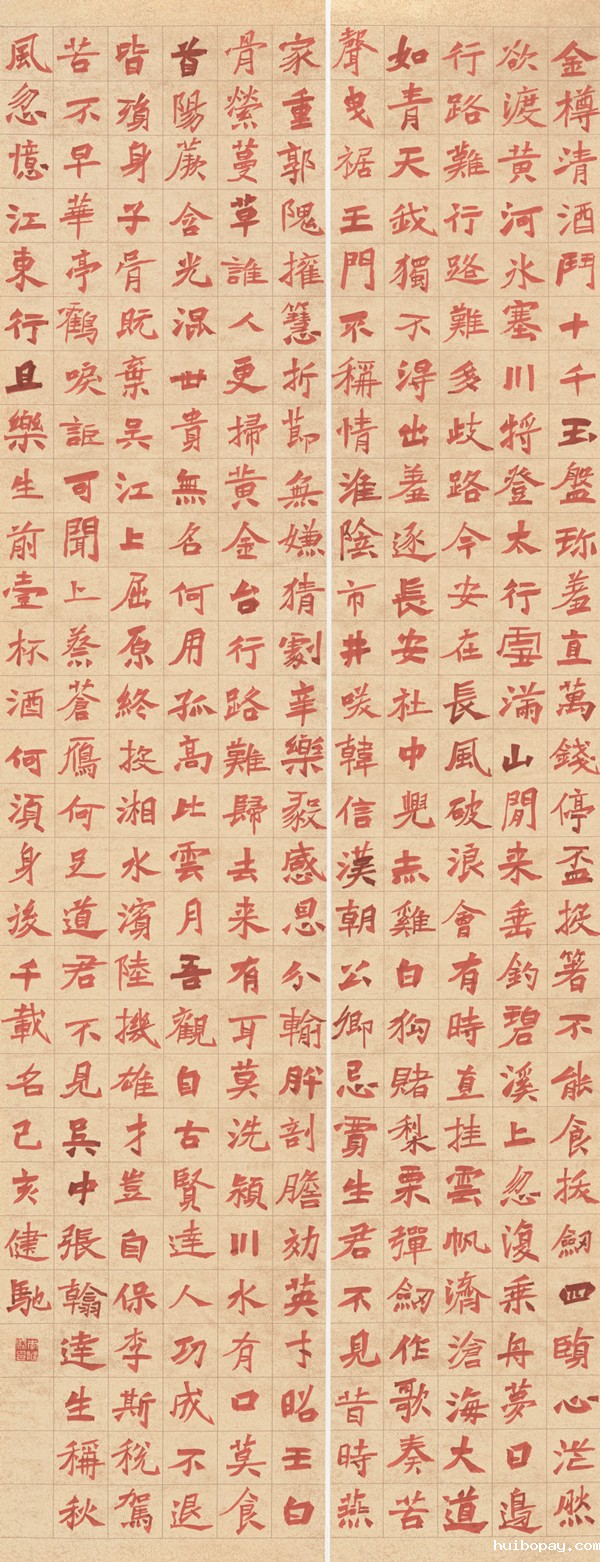 金樽清酒鬥十千玉盤珎羞直萬錢停盃投箸不能食拔劒四頋心茫然
欲渡黄河氷塞川将登太行雪滿山閒来垂釣碧溪上忽復乘舟夢日邊
行路難行路難多歧路今安在長風破浪會有時直挂雲帆濟滄海大道
如青天我獨不得出羞逐長安社中兒赤雞白狗賭梨栗彈劒作歌奏苦
聲曳裾王門不稱情淮陰市井咲韓信漢朝公卿忌賈生君不見昔時燕
家重郭隗擁篲折節無嫌猜劇辛樂毅感恩分輸肝剖膽効英才昭王白
骨縈蔓草誰人更掃黄金台行路難歸去来有耳莫洗潁川水有口莫食
首陽蕨含光混世貴無名何用孤高比雲月吾觀自古賢達人功成不退
皆殞身子胥既棄吴江上屈原終投湘水濱陸機雄才豈自保李斯税駕
苦不早華亭鶴唳詎可聞上蔡蒼鷹何足道君不見吴中張翰達生稱秋
風忽憶江東行且樂生前壹杯酒何須身後千載名己亥健馳
huibopay.com